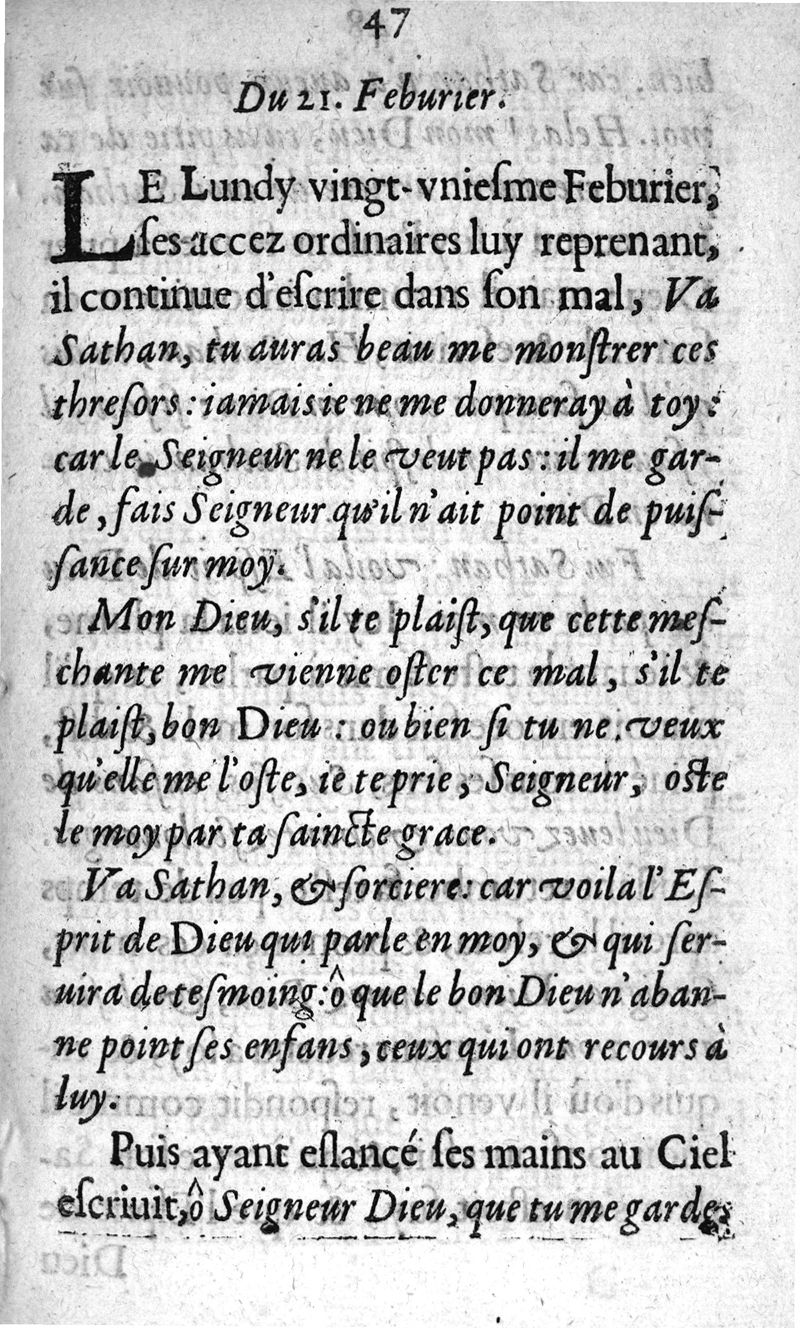 47
Du 21. Feburier.
LE Lundy vingt-vnieſme Feburier,
ſes accez ordinaires luy reprenant,
il continue d'eſcrire dans ſon mal, Va
Sathan, tu auras beau me monſtrer ces
threſors : iamais ie ne me donneray à toy :
car le Seigneur ne le veut pas : il me gar-
de, fais Seigneur qu'il n'ait point de puiſ-
ſance ſur moy.
Mon Dieu, s'il te plaiſt, que cette meſ-
chante me vienne oſter ce mal, s'il te
plaiſt, bon Dieu : ou bien ſi tu ne veux
qu'elle me l'oſte, ie te prie, Seigneur, oſte
le moy par ta ſaincte grace.
Va Sathan, & ſorciere : car voila l'Eſ-
prit de Dieu qui parle en moy, & qui ſer-
uira de teſmoing : ô que le bon Dieu n'aban-
ne point ſes enfans, ceux qui ont recours à
luy.
Puis ayant eſlancé ſes mains au Ciel
eſcriuit, ô Seigneur Dieu, que tu me gardes